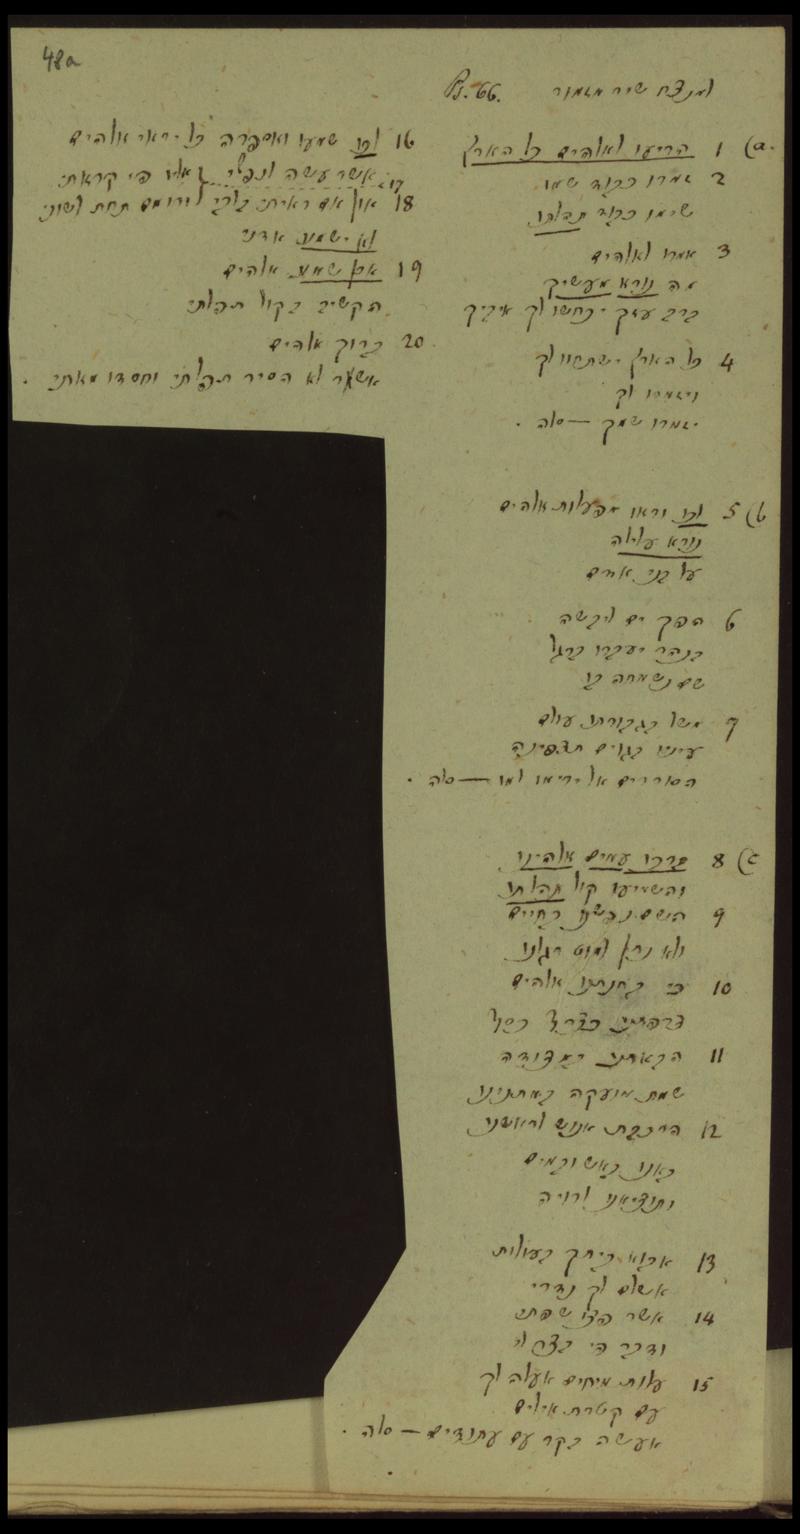 48a
Ps. 66. למנצח שיר מזמור
a) 1 הריעו לאלהים כל הארץ
2 זמרו כבוד שמו
שימו כבוד תהלתו
3 אמרו לאלהים
מה נורא מעשיך
ברב עזך יכחשו לך איביך
4 כל הארץ ישתחוו לך
ויזמרו לך
יזמרו שמך — סלה.
b) 5 לכו וראו מפעלות אלהים
נורא עלילה
על בני אדם
6 הפך ים ליבשה
בנהר יעברו ברגל
שם נשמחה בו
7 משל בגבורתו עולם
עיניו בגוים תצפינה
הסוררים אל ירימו למו — סלה.
c) 8 ברכו עמים אלהינו
והשמיעו קול תהלתו
9 השם נפשנו בחיים
ולא נתן למוט רגלנו
10 כי בחנתנו אלהים
צרפתנו כצרף כסף
11 הבאתנו במצודה
שמת מועקה במתנינו
12 הרכבת אנוש לראשנו
באנו באש ובמים
ותוציאנו לרויה
13 אבוא ביתך בעולות
אשלם לך נדרי
14 אשר פצו שפתי
ודבר פי בצר לי
15 עלות מיחים אעלה לך
עם קטרת אילים
אעשה בקר עם עתודים — סלה.
16 לכו שמעו ואספרה כל יראי אלהים
אשר עשה לנפשי 17 אליו פי קראתי
18 און אם ראיתי בלבי ורומם תחת לשוני
לא ישמע אדני
19 אכן שמע אלהים
הקשיב בקול תפלתי
20 ברוך אלהים
אשער לא הסיר תפלתי וחסדו מאתי.